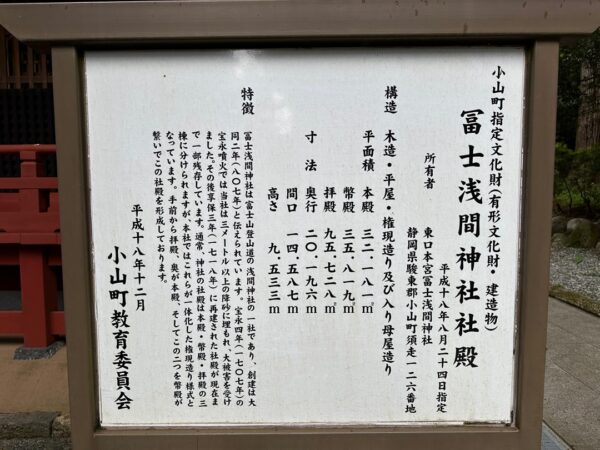 小山町指定文化財(有形文化財・建造物)
平成十八年八月二十四日指定
冨士浅間神社社殿
所有者 東口本宮冨士浅間神社
静岡県駿東郡小山町須走一二六番地
構造 木造・平屋・権現造り及び入り母屋造り
平面積 本殿 三二.一八一㎡
幣殿 三五.八一九㎡
拝殿 九五.七二八㎡
寸法 奥行 二〇.一九六m
間口 一四.五八七m
高さ 九.五三三m
特徴 冨士浅間神社は富士山登山道の浅間神社の一社であり、創建は大
同二年(八〇七年)と伝えられています。宝永四年(一七〇七年)の
宝永噴火では当社は三メートル以上の降砂に埋もれ、大被害を受け
ました。その後享保三年(一七一八年)に再建された社殿が現在ま
で一部残存しています。通常、神社の社殿は本殿・幣殿・拝殿の三
棟に分けられますが、本社ではこれらが一体化した権現造り様式と
なっています。手前から拝殿、奥が本殿、そしてこの二つを幣殿が
繋いでこの社殿を形成しております。
平成十八年十二月
小山町教育委員会